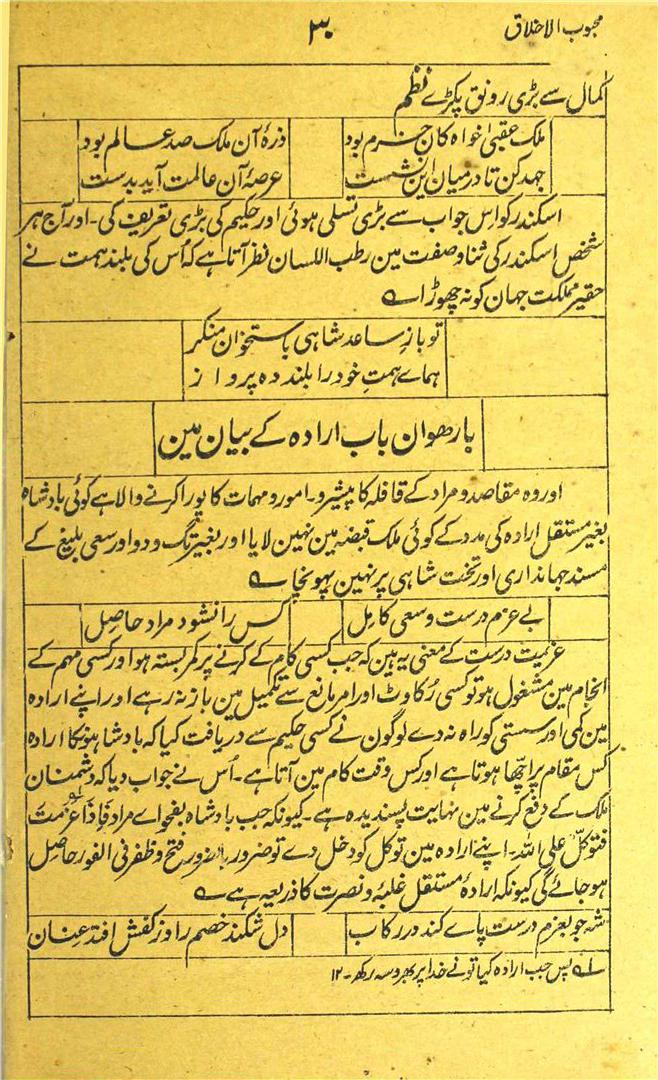 محبوب الاخلاق
۳۰
کمال سے بڑی رونق پکڑے نظم
ملک عقبیٰ خواہ کان خرم بود ذرۂ آن ملک صد عالم بود
جہد کن تا درمیان این نشست عرصۂ آن عالمت آید بدست
اسکندر کو اس جواب سے بڑی تسلی ہوئی اور حکیم کی بڑی تعریف کی۔ اور آج ہر
شخص اسکندر کی ثنا و صفت مین رطب اللسان نظر آتا ہے کہ اُس کی بلند ہمت نے
حقیر مملکت جہان کو نہ چھوڑا ے
تو باز ساعد شاہی باستخوان منگر
ہماے ہمتِ خود را بلند دہ پرواز
بارھوان باب ارادہ کے بیان مین
اور وہ مقاصد و مراد کے قافلہ کا پیشرو۔ امور و مہمات کا پورا کرنے والا ہے کوئی بادشاہ
بغیر مستقل ارادہ کی مدد کے کوئی ملک قبضہ مین نہین لایا اور بغیر تگ و دو اور سعی بلیغ کے
مسند جہانداری اور تخت شاہی پر نہین پہونچا ے
بے عزم درست و سعی کامل کس را نشود مراد حاصِل
عزمیت درست کے معنی یہ ہین کہ جب کسی کام کے کرنے پر کمر بستہ ہو اور کسی مہم کے
انجام مین مشغول ہو تو کسی رُکاوٹ اور امر مانع سے تکمیل مین باز نہ رہے اور اپنے ارادہ
مین کمی اور سستی کو راہ نہ دے لوگون نے کسی حکیم سے دریافت کیا کہ بادشاہونکا ارادہ
کس مقام پر اچھّا ہوتا ہے اور کس وقت کام مین آتا ہے۔ اُس نے جواب دیا کہ دشمنان
ملک کے دفع کرنے مین نہایت پسندیدہ ہے۔ کیونکہ جب بادشاہ بفحواے مراد فَاِذَا عَزَمْتَ
فتوکّل علی اللہ۔ اپنے ارادہ مین توکل کو دخل دے تو ضرور بالضرور فتح و ظفر فی الفور حاصِل
ہو جائے گی کیونکہ ارادۂ مستقل غلبۂ و نصرت کا ذریعہ ہے ے
شہ چو بعزم درست پاے کند در رکاب دل شکند خصم را وز کفش افتد عِنان
لہ پس جب ارادہ کیا تونے خدا پر بھروسہ رکھ۔ ۱۲